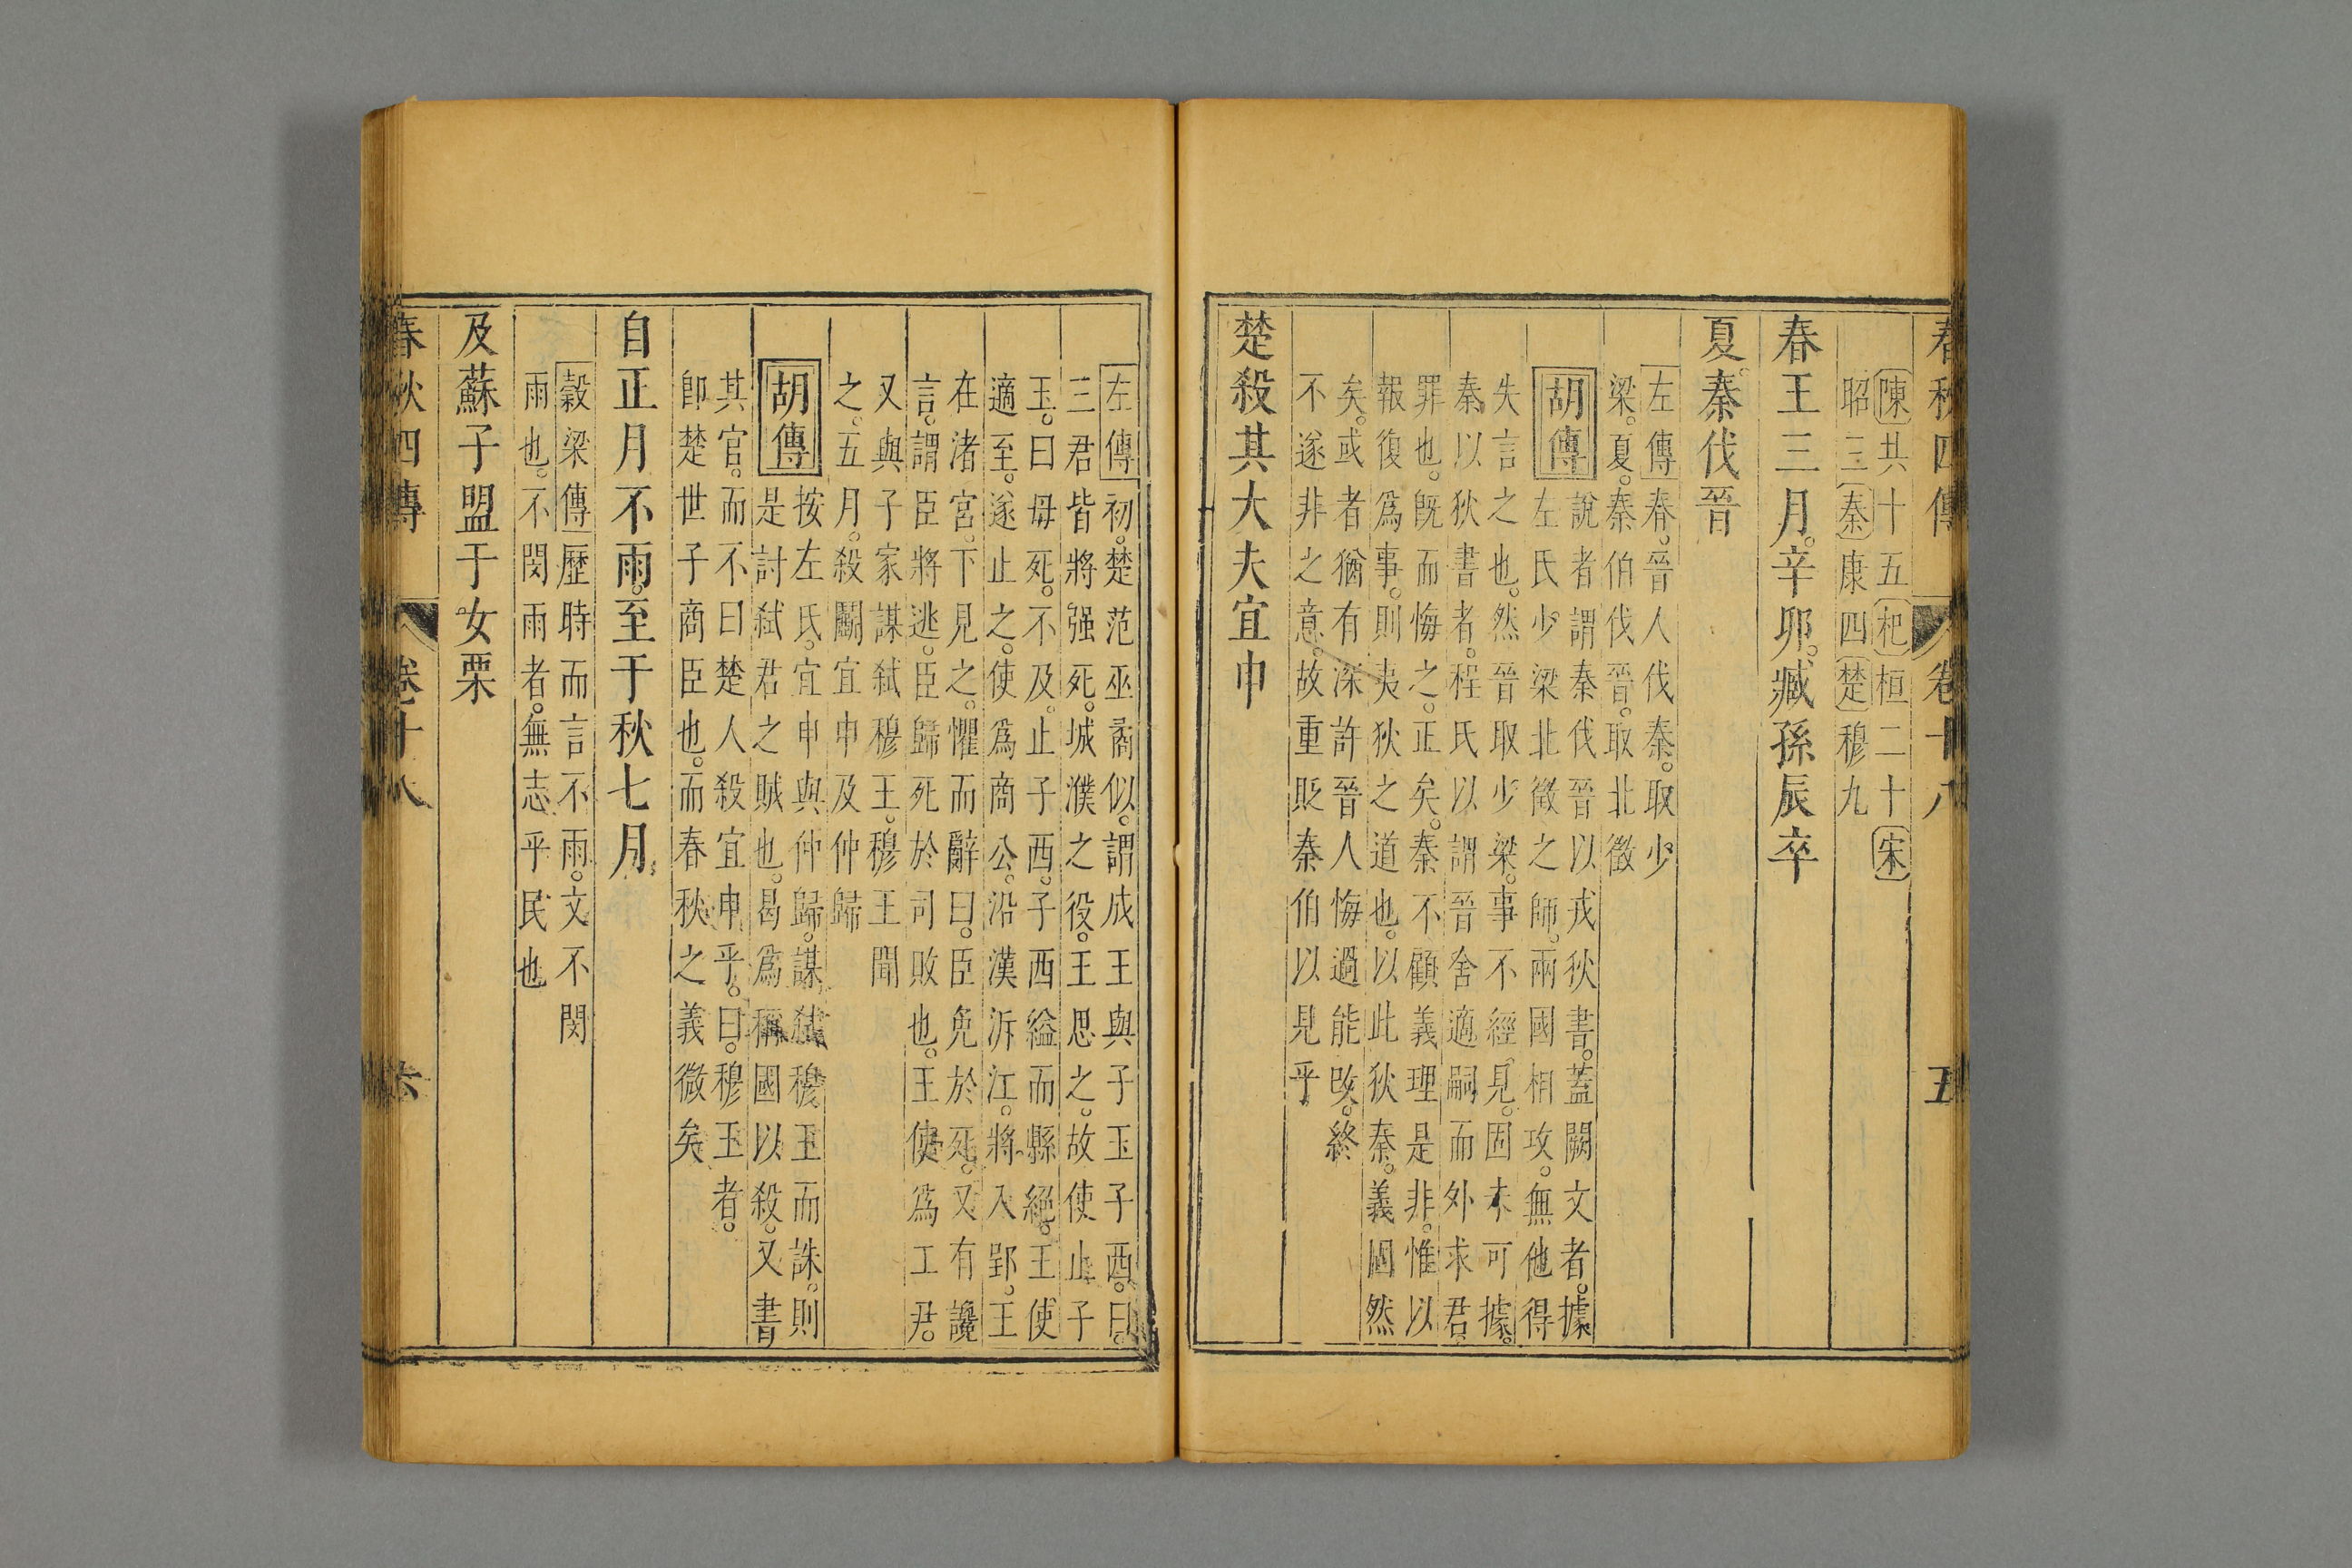 春秋四傳 卷十八 五
陳共十五杞桓二十宋
昭三秦康四楚穆九
春王三月。辛卯。臧孫辰卒
夏。秦伐晉
左傳春。晉人伐秦。取少
梁。夏。秦伯伐晉。取北徵
胡傳說者謂秦伐晉以戎狄書。蓋闕文者。據
左氏少梁北徵之師。兩國相攻。無他得
失言之也。然晉取少梁。事不經見。固未可據。
秦以狄書者。程氏以謂晉舍適嗣而外求君。
罪也。既而悔之。正矣。秦不顧義理是非。惟以
報復爲事。則夷狄之道也。以此狄秦。義固然
矣。或者猶有深許晉人悔過能改。終
不遂非之意。故重貶秦伯以見乎
楚殺其大夫宜申
左傳初。楚范巫矞似。謂成王與子玉子西。曰。
三君皆將强死。城濮之役。王思之。故使止子
玉。曰毋死。不及。止子西。子西縊而縣絕。王使
適至。遂止之。使爲商公。沿漢泝江。將入郢。王
在渚宮。下見之。懼而辭曰。臣免於死。又有讒
言。謂臣將逃。臣歸死於司敗也。王使爲工尹。
又與子家謀弑穆王。穆王聞
之。五月。殺鬭宜申及仲歸
胡傳按左氏。宜申與仲歸。謀弑穆王而誅。則
是討弑君之賊也。曷爲稱國以殺。又書
其官。而不曰楚人殺宜申乎。曰。穆王者。
卽楚世子商臣也。而春秋之義微矣
自正月不雨。至于秋七月
穀梁傳歷時而言不雨。文不閔
雨也。不閔雨者。無志乎民也
及蘇子盟于女栗
春秋四傳 卷十八 六